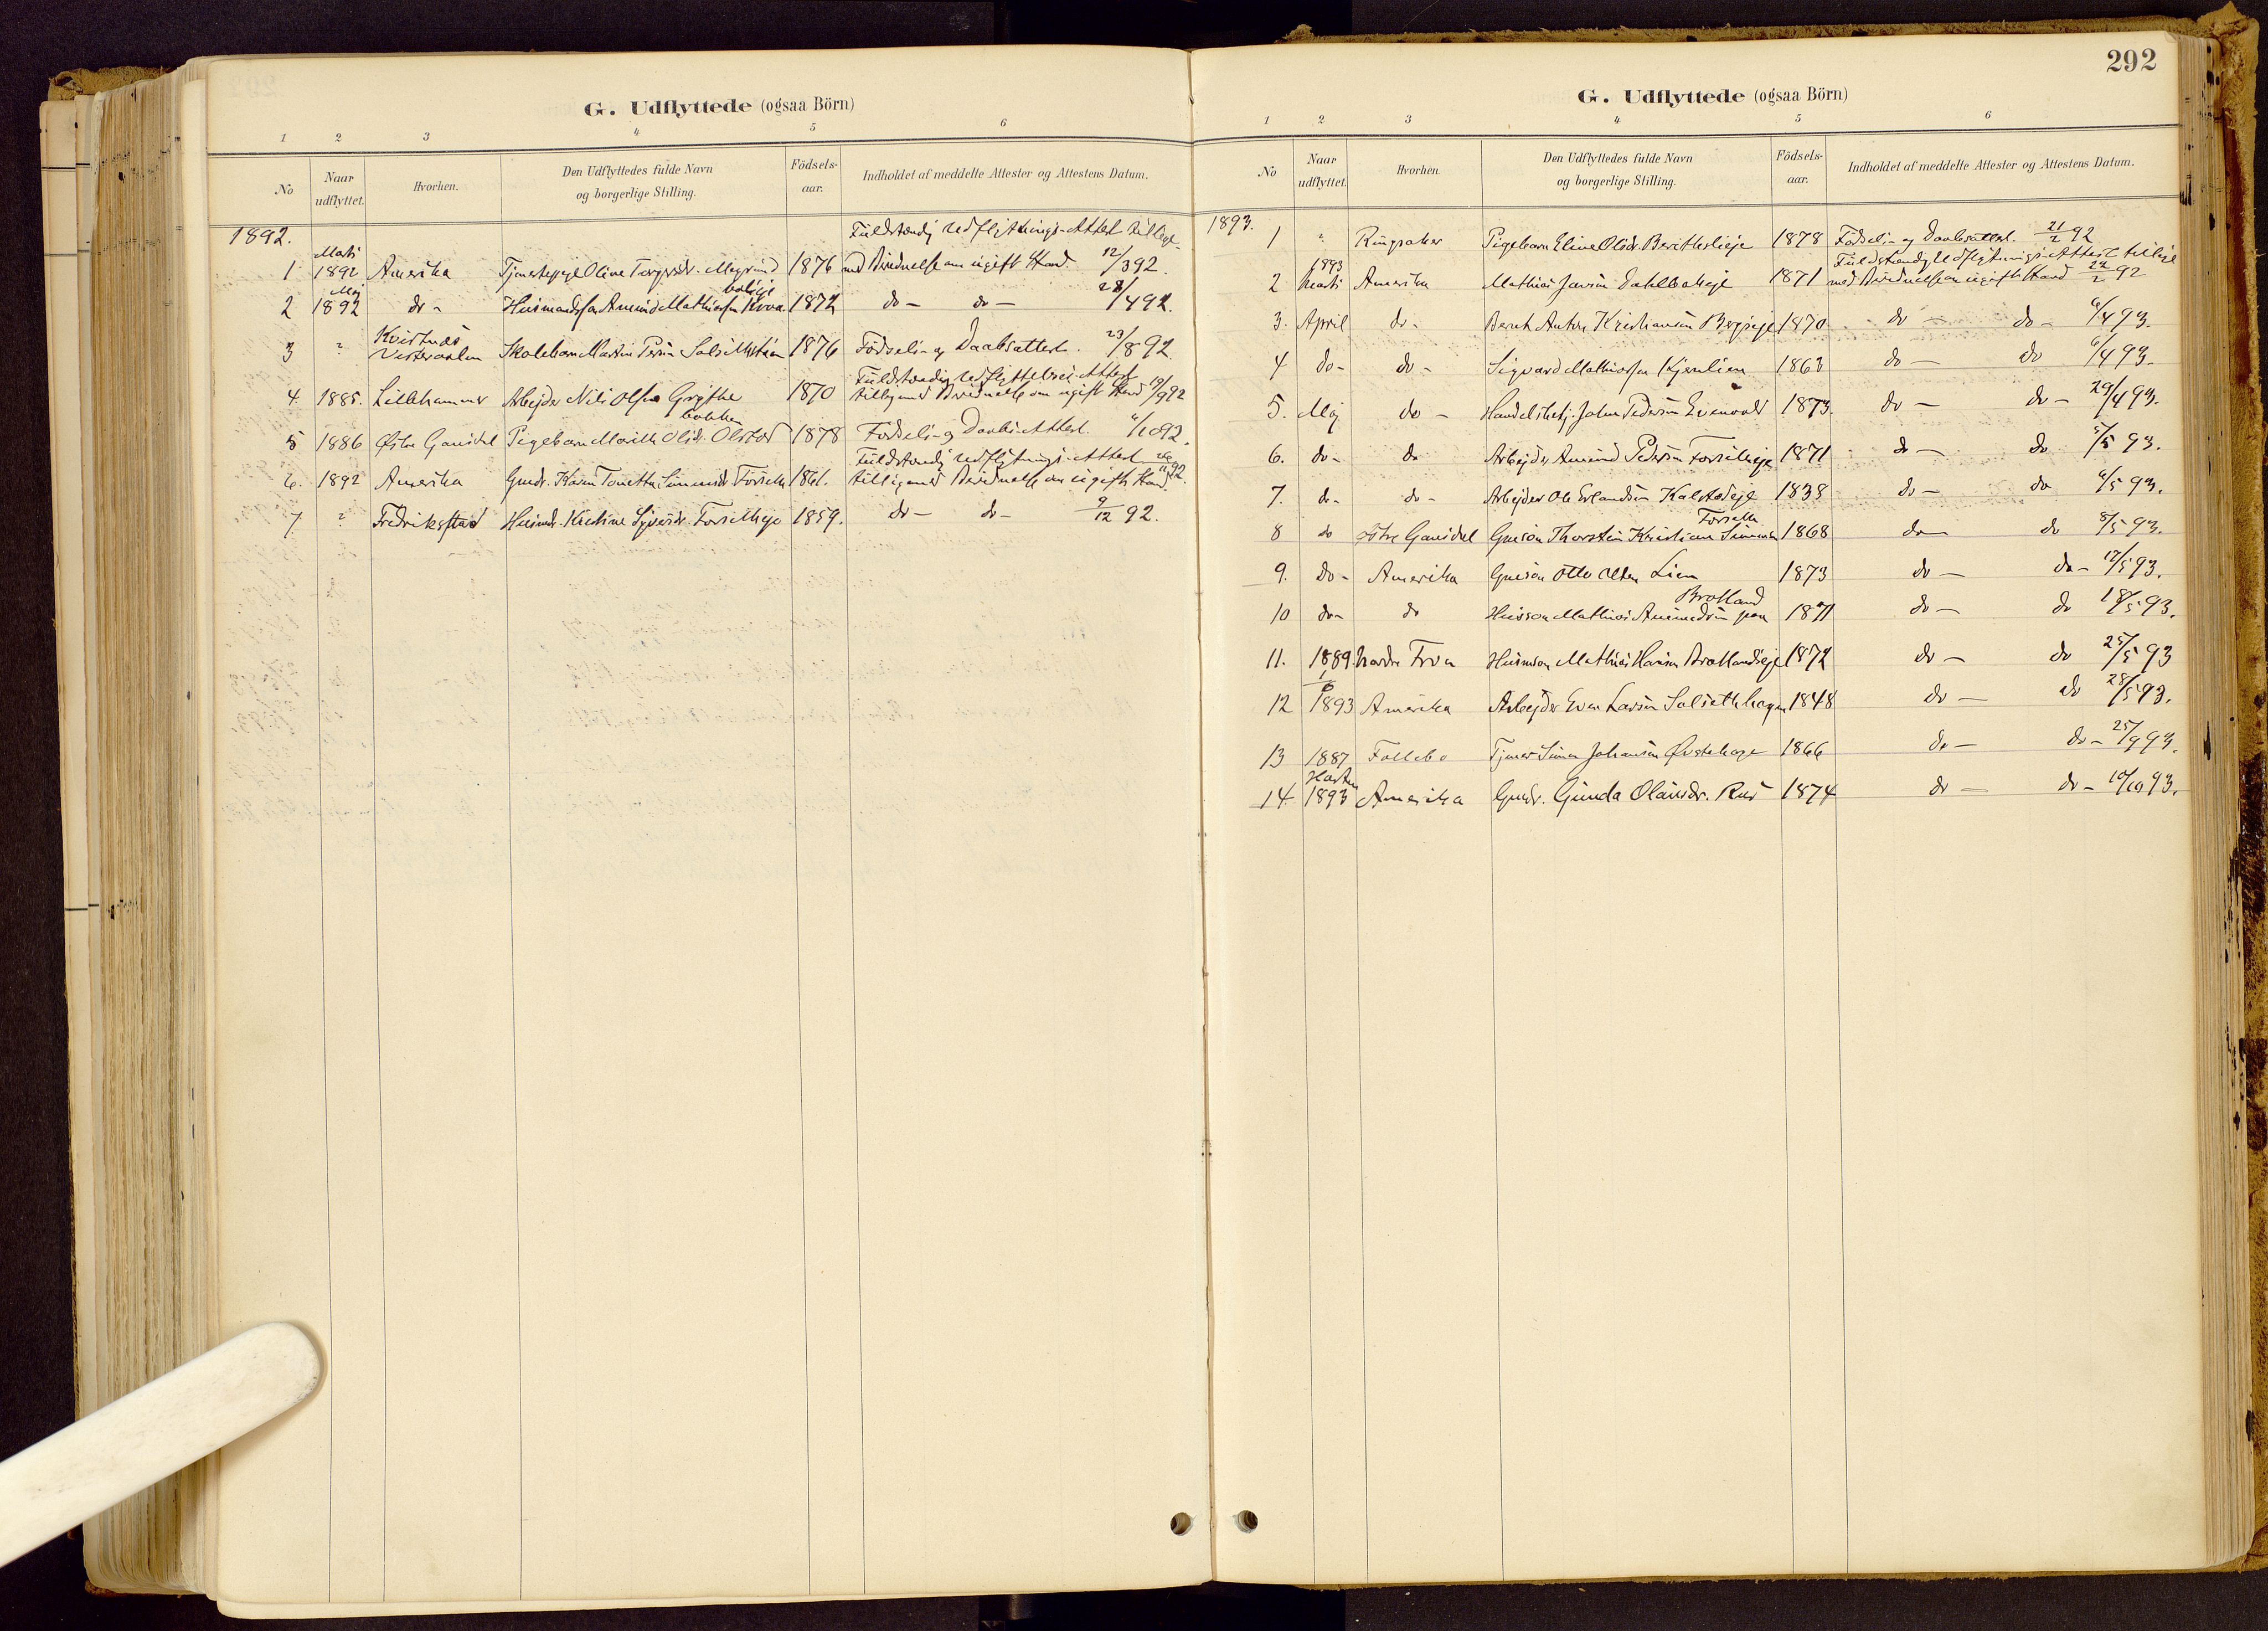 G. Udflyttede (ogsaa Börn)
1 2 3 4 5 6
No
Naar udflyttet.
Hvorhen.
Den Udflyttedes fulde Navn og borgerlige Stilling.
Födsels-aar.
Indholdet af meddelte Attester og Attestens Datum.
1892.
Fuldstændig Udflytnings-Attest tillige
1 Marts 1892 Amerika Tjenestepige Oline 1876 med Bevidnelse om ugift Stand 12/3 92.
2 Maj 1892 do - Husmandssøn Amund Mathiassen 1872 do - do - 28/4 92.
3 " Kvitnes Vesteraalen Skolebarn Martin 1876 Födsels- og Daabsattest. 23/8 92.
Fuldstændig Udflyttelses-Attest
4 1885. Lillehammer Arbejder Nils Olsen Grytbakken 1870 tilligemed Bevidnelse om ugift Stand 19/9 92
5 1886 Østre Gausdal Pigebarn Marith Olsdr. Olstad 1878 Fødsels- og Daabs-Attest. 4/10 92.
Fuldstændig Udflytnings-Attest
6. 1892 Amerika Gmdr. Karen Tonette Simensdr. Forseth 1861. tilligemed Bevidnelse om ugift Stand 92.
7 " Fredrikstad Husmdr. Kristine Syversdr. Forsetheje 1859. do - do - 9/12 92.
292
G. Udflyttede (ogsaa Börn)
1 2 3 4 5 6
No
Naar udflyttet.
Hvorhen.
Den Udflyttedes fulde Navn og borgerlige Stilling.
Födsels-aar.
Indholdet af meddelte Attester og Attestens Datum.
1893.
1 " Ringsaker Pigebarn Eline Olsdr. 1878 Födsels- og Daabsattest. 21/2 92
Fuldstændig Udflytnings-Attest tillige
2 1893 Marts Amerika Mathias Jensen Dahlbakeje 1871 med Bevidnelse om ugift Stand 22/2 92
3. April do - Bernt Anton Kristiansen Bergseje 1870 do - do - 6/4 93.
4 do - do - Sigvard Mathiassen Kjernlien 1863 do - do 6/4 93.
5. Maj do - Handelsbetj. Johan Pedersen Evenvold 1873 do - do - 29/4 93.
6. do - do Arbejder Amund Pedersen Forsetheje 1871 do - do 5/5 93.
7. do - do - Arbejder Ole Erlandsen Kalstadeje 1838 do - do 6/5 93.
8 do Østre Gausdal Gmsøn Thorstein Kristian Simensen Forseth 1868 do - do 8/5 93.
9. do - Amerika Gmsøn Otto Olsen Lien 1873 do - do - 12/5 93.
10 do - do Hussøn Mathias Amundsen Brotland 1871 do - do 18/5 93.
11. 1889 Nordre Fron Husmsøn Mathias Hansen Brotlandseje 1872 do - do 25/5 93
12 1893 Amerika Arbejder Even Larsen Solsethhagen 1848 do - do 28/5 93.
13 1887 Follebo Tjener Simen Johansen Øvstehage 1866 do - do - 25/9 93.
14. Høsten 1893 Amerika Gmdr. Gunda Olausdr. Rus 1874 do - do - 10/10 93.